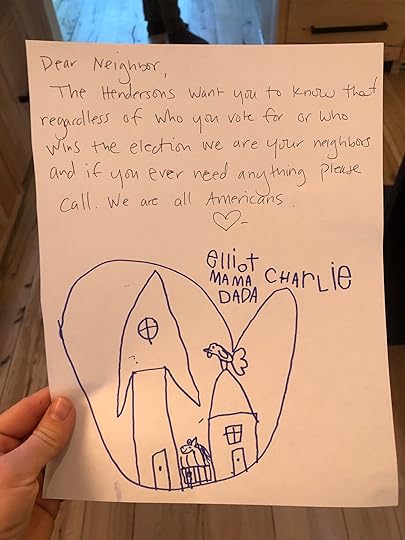 Dear Neighbor,
The Hendersons want you to know that
regardless of who you vote for or who
wins the election we are your neighbors
and if you ever need anything please
call. We are all Americans.
♡-
elliot
MAMA CHARLIE
DADA